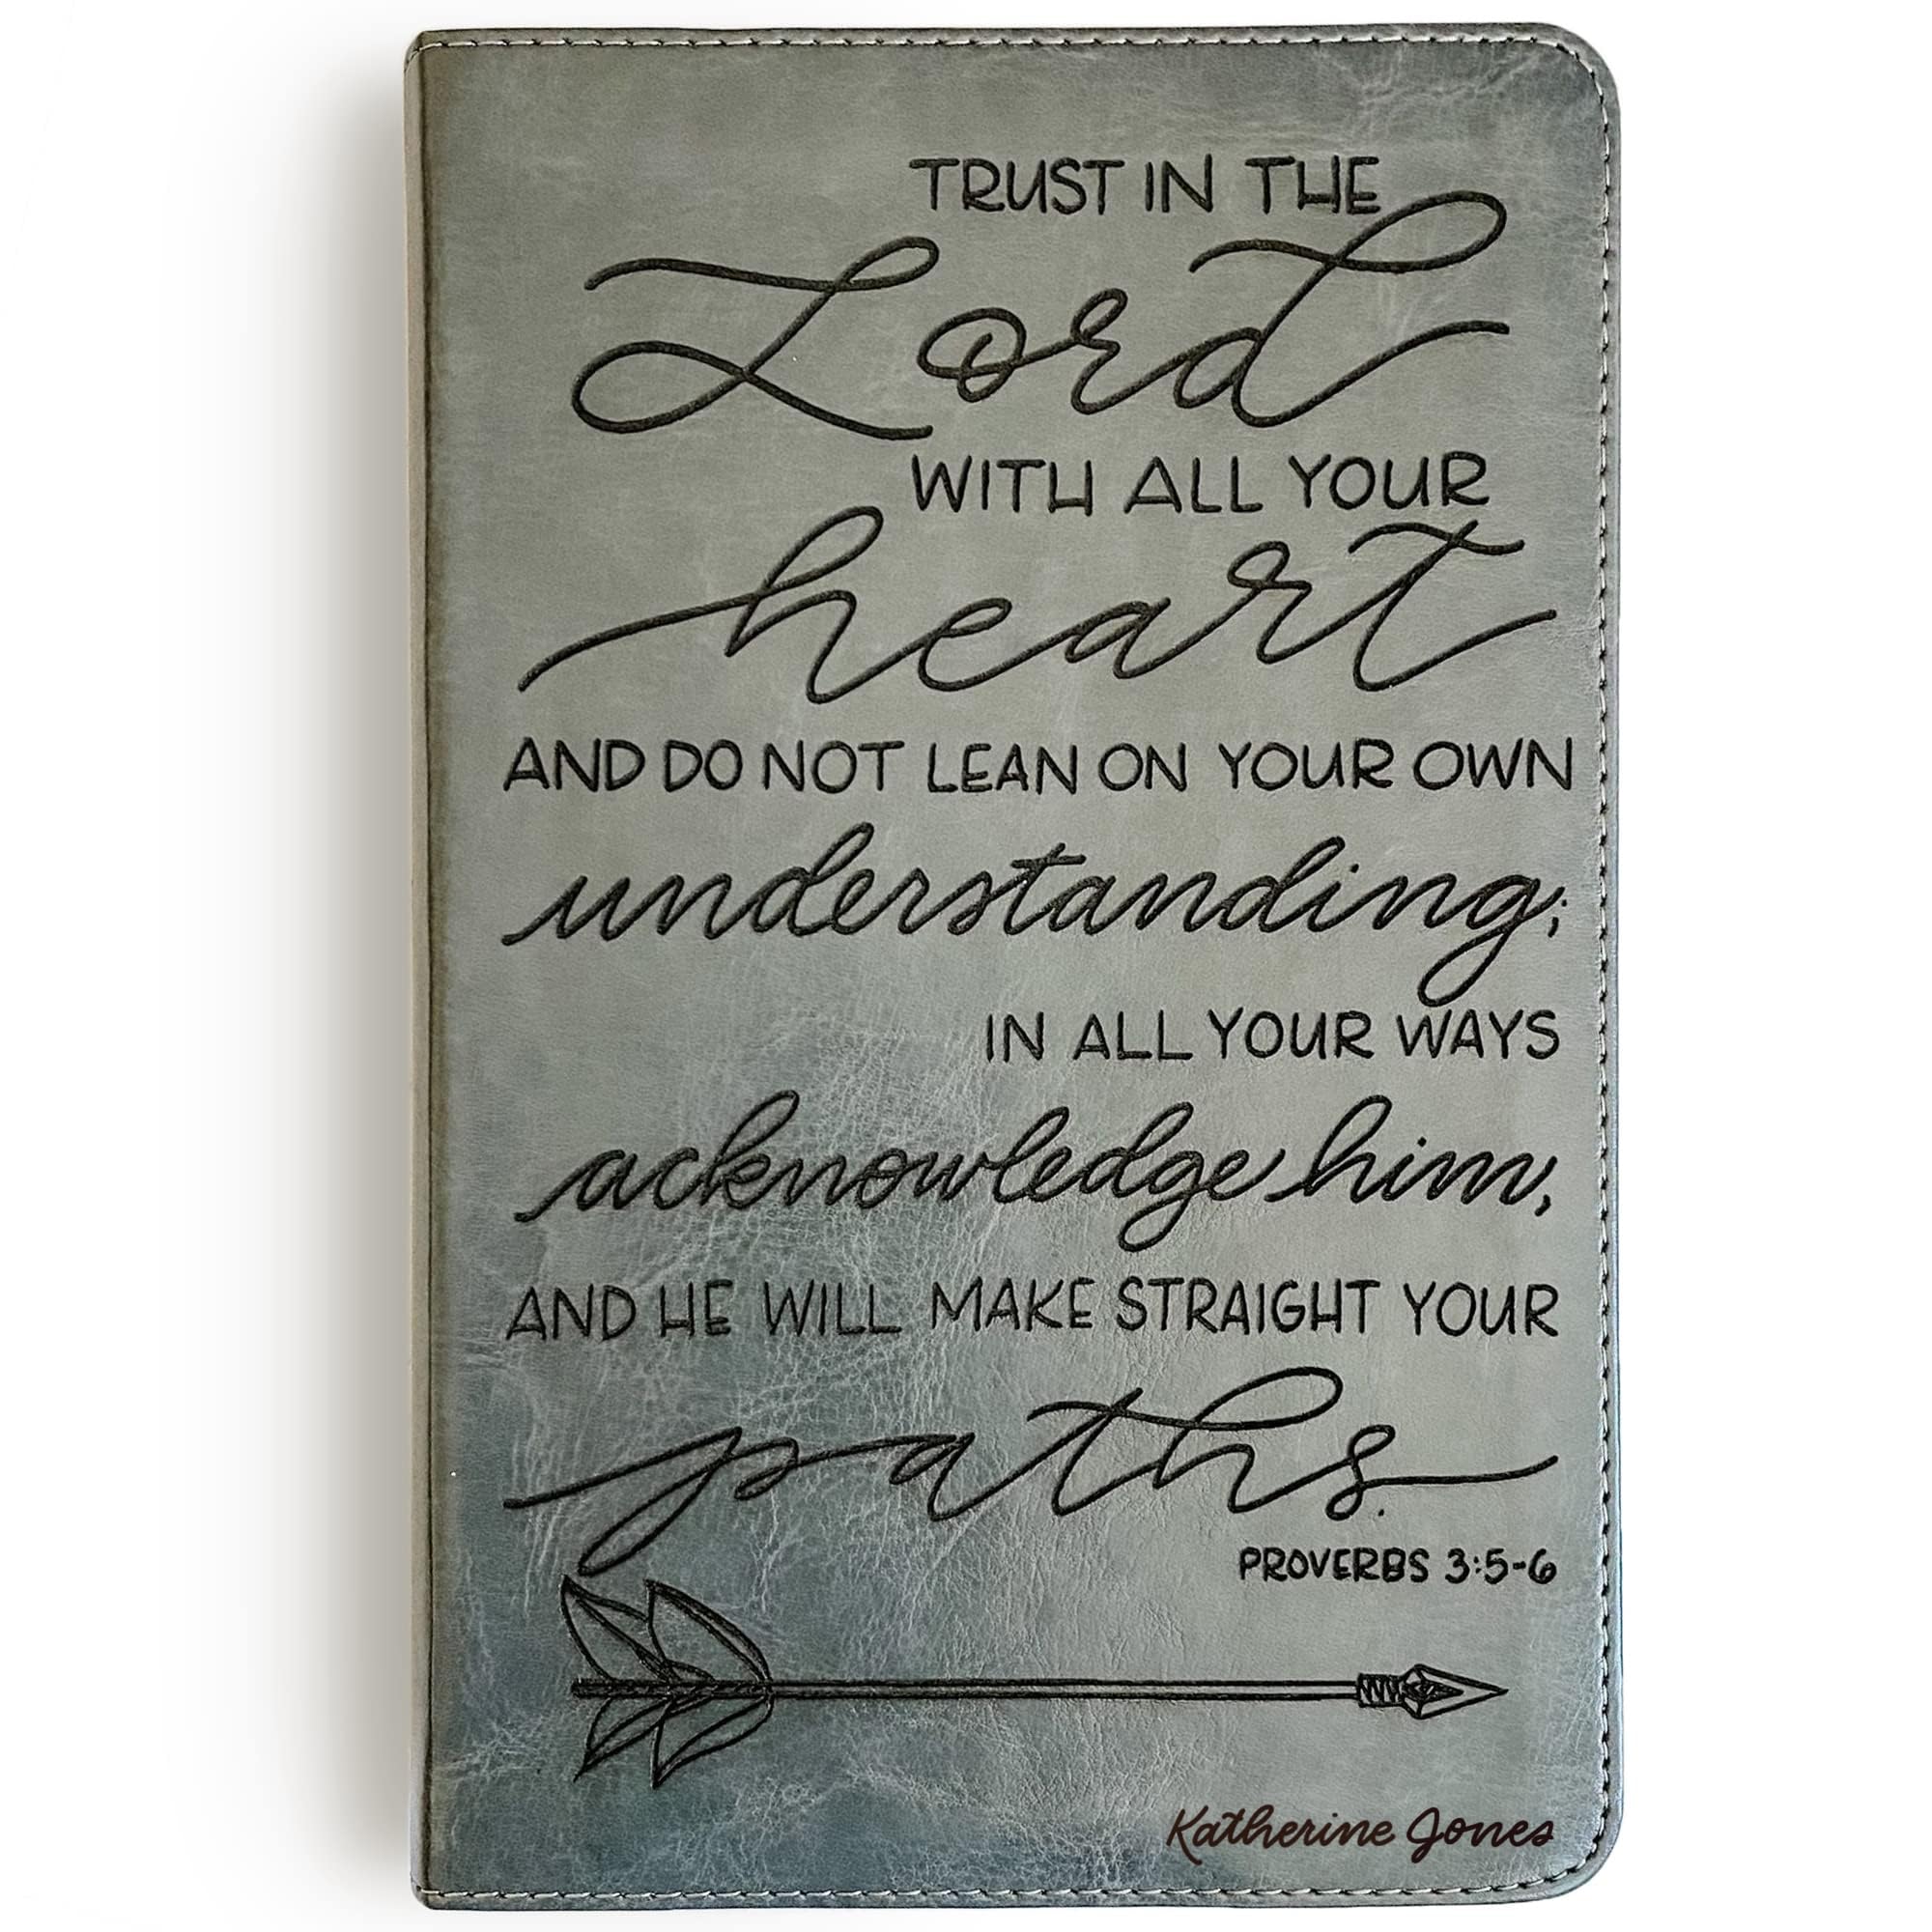 TRUST IN THE
Lord
WITH ALL YOUR
heart
AND DO NOT LEAN ON YOUR OWN
understanding;
IN ALL YOUR WAYS
acknowledge him,
AND HE WILL MAKE STRAIGHT YOUR
paths.
PROVERBS 3:5-6
Katherine Jones